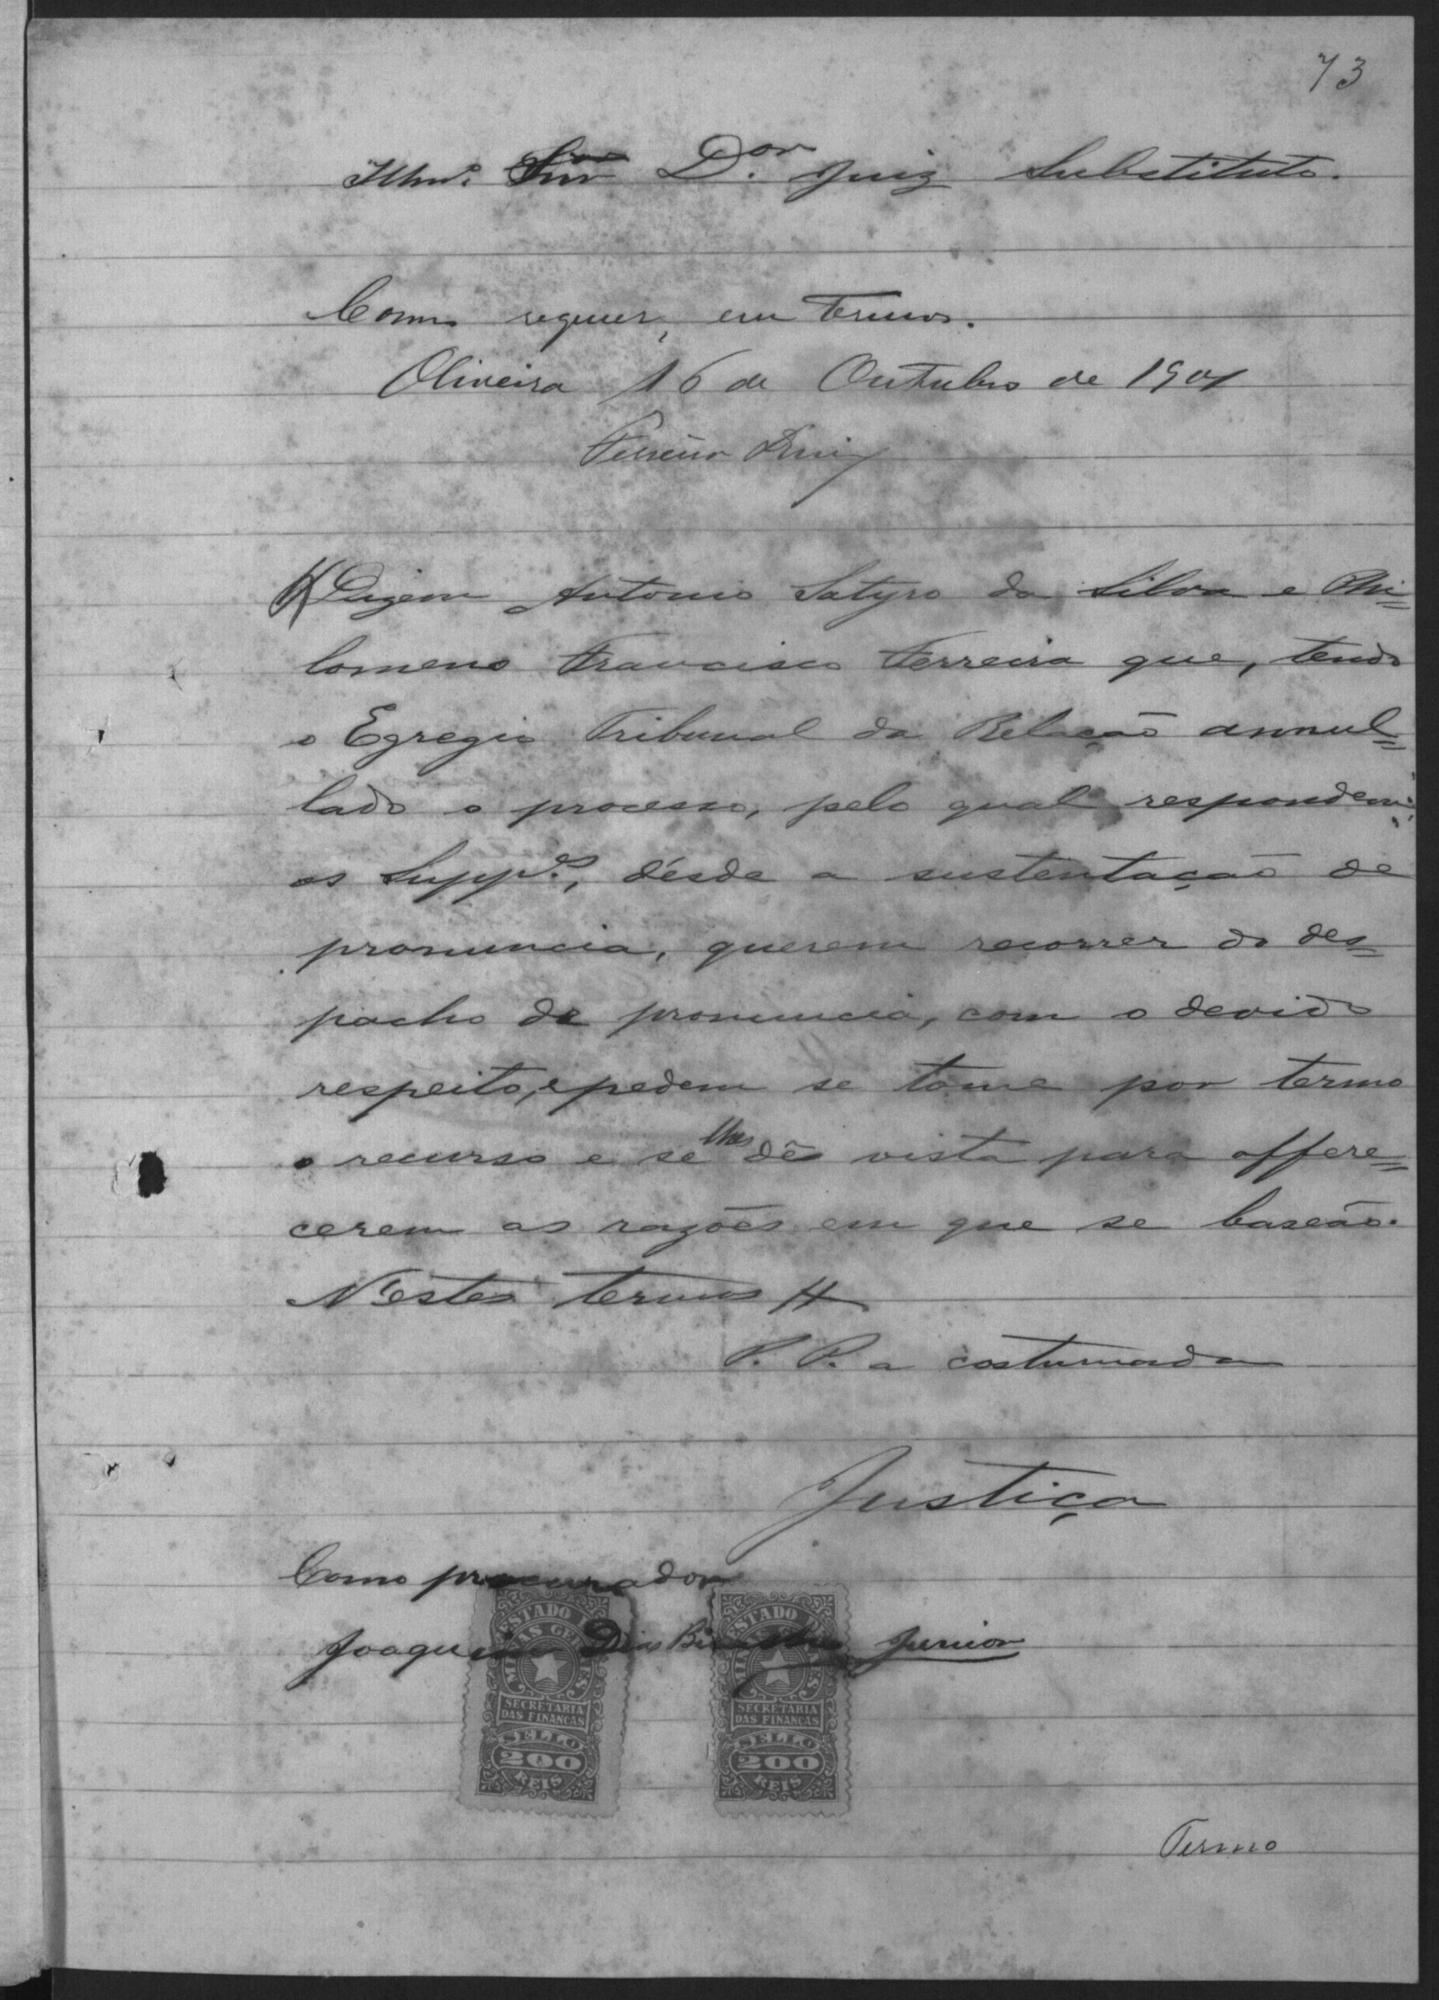 73
Illmº. Snr Dor. Juiz Substituto.
Como requer, em termos.
Oliveira 16 de Outubro de 1901
Dizem Antonio Satyro da Silva e Phi=
lomeno Francisco Ferreira que, tendo
o Egregio Tribunal da Relação annul=
lado o processo, pelo qual respondem
os Suppes., désde a sustentação de
pronuncia, querem recorrer do des=
pacho de pronuncia, com o devido
respeito, e pedem se tome por termo
o recurso e se lhes dê vista para offere=
cerem as razões em que se baseão.
N'estes termos
P. P. a costumada
Justiça
Como procurador
Joaquim Dias Junior
ESTADO DE MINAS GERAES
SECRETARIA DAS FINANCAS
SELLO
200
REIS
ESTADO DE MINAS GERAES
SECRETARIA DAS FINANCAS
SELLO
200
REIS
Termo